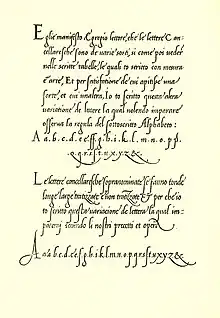 Eglie manifesto, Egregio lettore, che le lettere Can
cellaresche sono de varie sorti, si come poi veder
nelle scritte tabelle, le quali to scritto con mesura
e arte, Et per satisfatione de cui apitisse una
sorte, et qui unaltra, Io to scritto questa altra
variatione de lettere la qual volendo imparare
osserva la regula del sottoscritto Alphabeto:
A a.b.c.d.e.f.g.h.i.k.l.m.n.o.p.
q.r.s.t.u.x.y.z.&
Le lettere cancellaresche sopranominate se fanno tonde
large large tratizzate e non tratizzate Et per che io
to scritto questa variatione de lettera la qual im
pararai secundo li nostri precetti et opera
A a.b.c.d.e.f.g.h.i.k.l.m.n.o.p.q.r.s.t.u.x.y.z.&